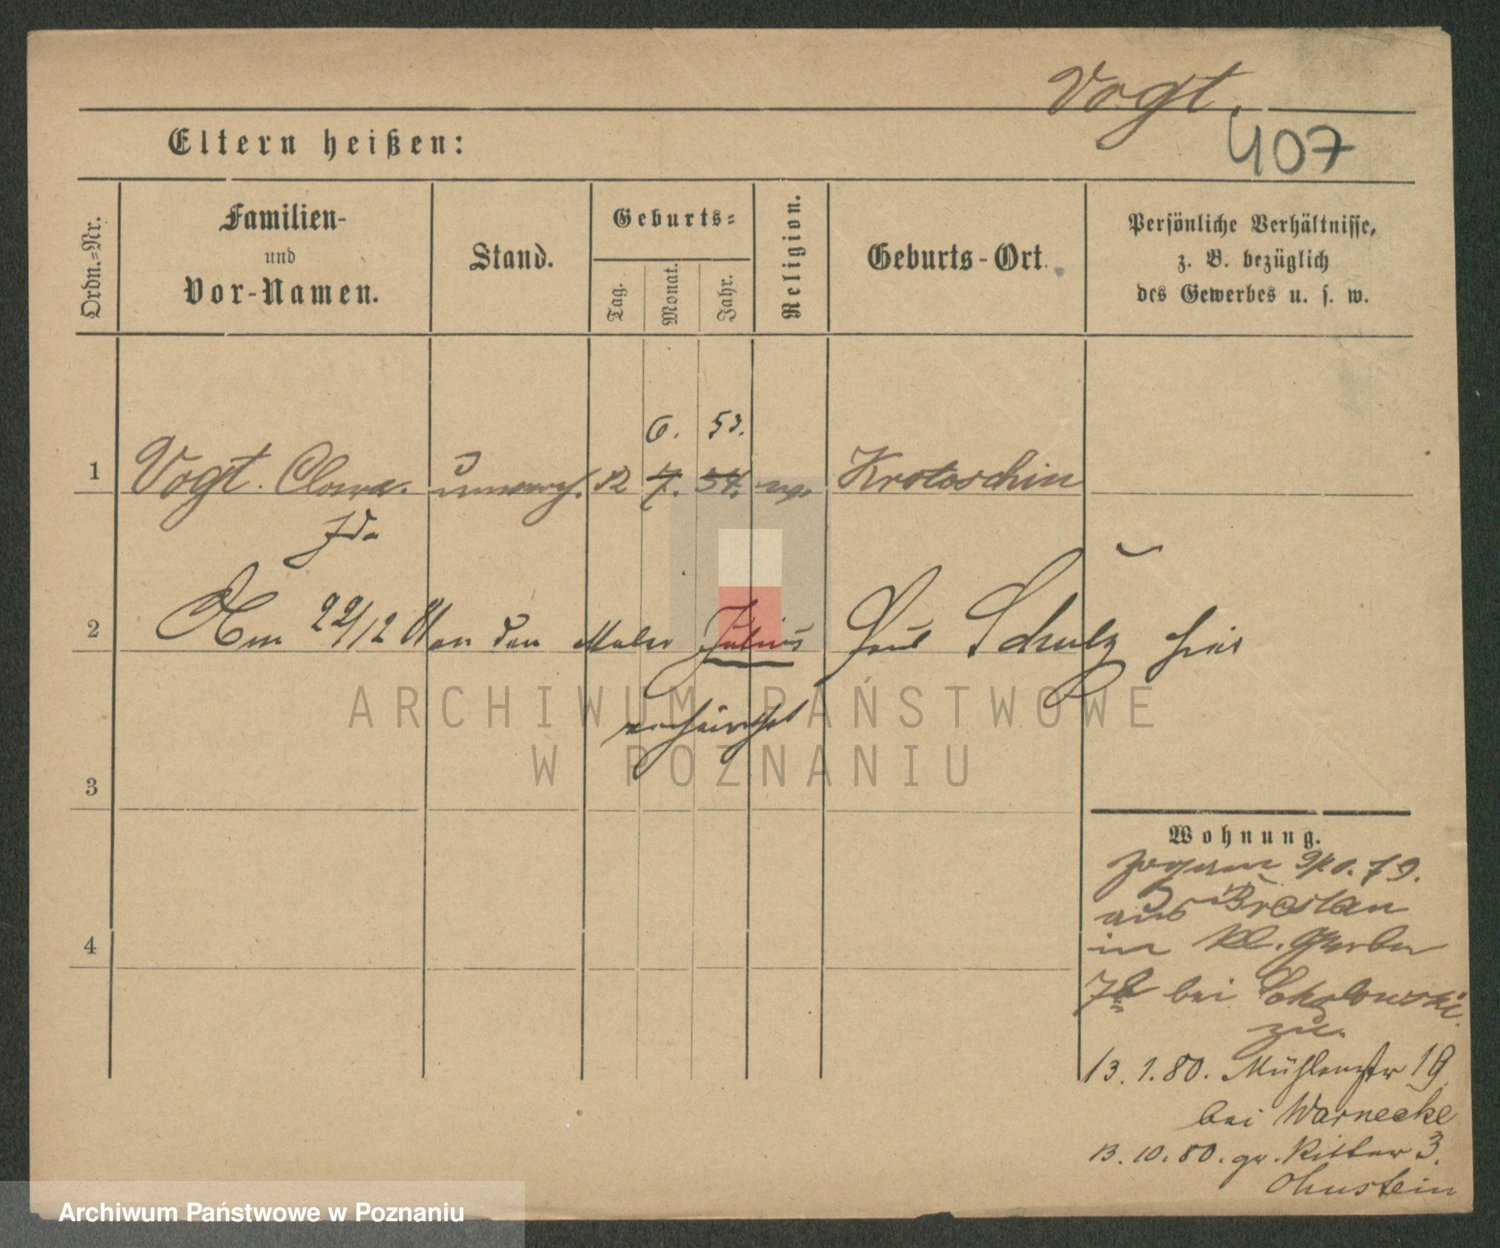 Vogt.
407
Eltern heißen:
Ordn.-Nr.
Familien-
und
Vor-Namen.
Stand.
Geburts-
Tag.
Monat.
Jahr.
Religion.
Geburts-Ort.
Persönliche Verhältnisse,
z. B. bezüglich
des Gewerbes u. s. w.
6. 53.
1 Vogt. Clara. unverh. 12 7. 54. ev. Krotoschin
Ida
2 Am 22/12 81 an den Maler Julius Paul Schulz hier
verheirathet
ARCHIWUM PAŃSTWOWE
W POZNANIU
3
4
Wohnung.
Zugang 9/10. 79.
aus Breslau
in Kl. Gerber
bei Sokolowski
zu.
13. 1. 80. Mühlenstr 19
bei Warnecke
13. 10. 80. gr. Ritter 3.
Ohnstein
Archiwum Państwowe w Poznaniu